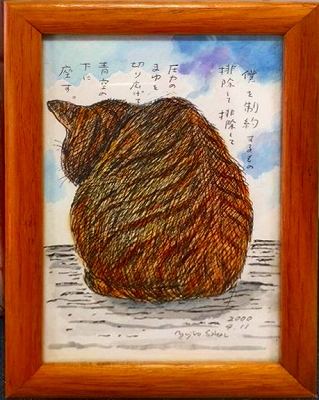 僕を制約するもの
排除して排除して
圧力の
まゆを
切り広げて
青空の
下に
座す。
2000
9.11